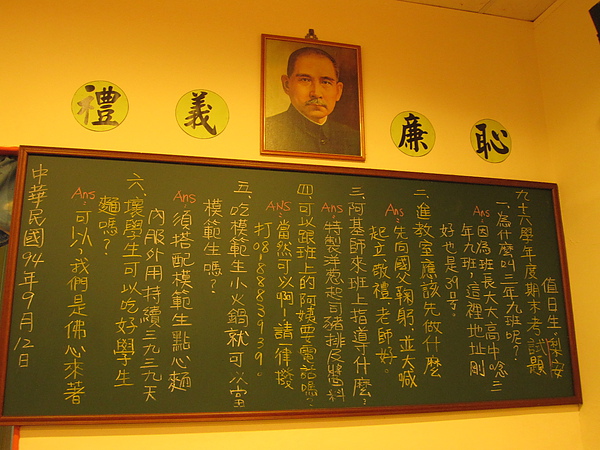 禮
義
廉
恥
值日生:梨安
九十六學年度期末考試題
一.為什麼叫三年九班呢?
Ans 因為班長大大高中唸三
年九班,這裡地址剛
好也是39号。
二.進教室應該先做什麼
Ans 先向國父鞠躬,並大喊
起立敬禮老師好。
三.阿基師來班上指導什麼?
Ans 特製洋蔥起司豬排及醬料
四.可以跟班上的阿姨要電話嗎?
ANS 當然可以啊!請一律撥
打08-8883939。
五.吃模範生小火鍋就可以當
模範生嗎?
Ans 須搭配模範生點心麵
內服外用持續三九三九天
六.壞學生可以吃好學生
麵嗎?
Ans 可以,我們是佛心來著
中華民國94年9月12日